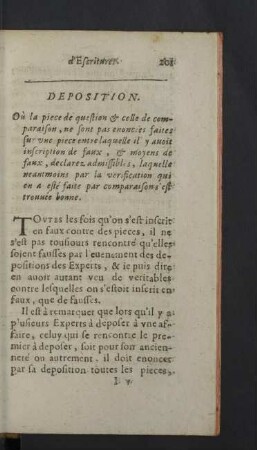 d'Escritures.
DEPOSITION.
Où la piece de question & celle de com-
paraison, ne sont pas enoncées faites
sur vne piece entre laquelle il y auoit
inscription de faux, & moyens de
faux, declarez admissibles, laquelle
neantmoins par la verification qui
en a esté faite par comparaisons s'est
trouuée bonne.
TOVTES les fois qu'on s'est inscrit
en faux contre des pieces, il ne
s'est pas tousiours rencontré qu'elles
soient fausses par l'euenement des de-
positions des Experts, & ie puis dire
en auoir autant veu de veritables
contre lesquelles on s'estoit inscrit en
faux, que de fausses.
Il est à remarquer que lors qu'il y a
plusieurs Experts à deposer à vne af-
faire, celuy qui se rencontre le pre-
mier à deposer, soit pour son ancien-
neté ou autrement, il doit enoncer
par sa deposition toutes les pieces,
I v